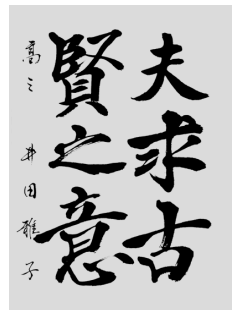 夫求古
賢之意
高三 井田雅子